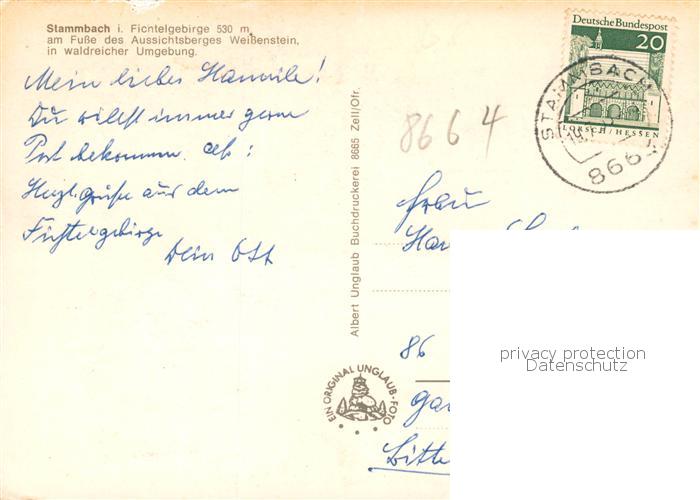 Stammbach i. Fichtelgebirge 530 m,
am Fuße des Aussichtsberges Weißenstein,
in waldreicher Umgebung.
Mein liebes Hannile!
Du willst immer gerne
Post bekommen. also:
Herzl. Grüße aus dem
Fichtelgebirge
Dein Ott
Albert Unglaub Buchdruckerei 8665 Zell/Ofr.
EIN ORIGINAL UNGLAUB-FOTO
Deutsche Bundespost
20
LORSCH/HESSEN
STAMMBACH
866
8664
Frau
86
Bitte
privacy protection
Datenschutz